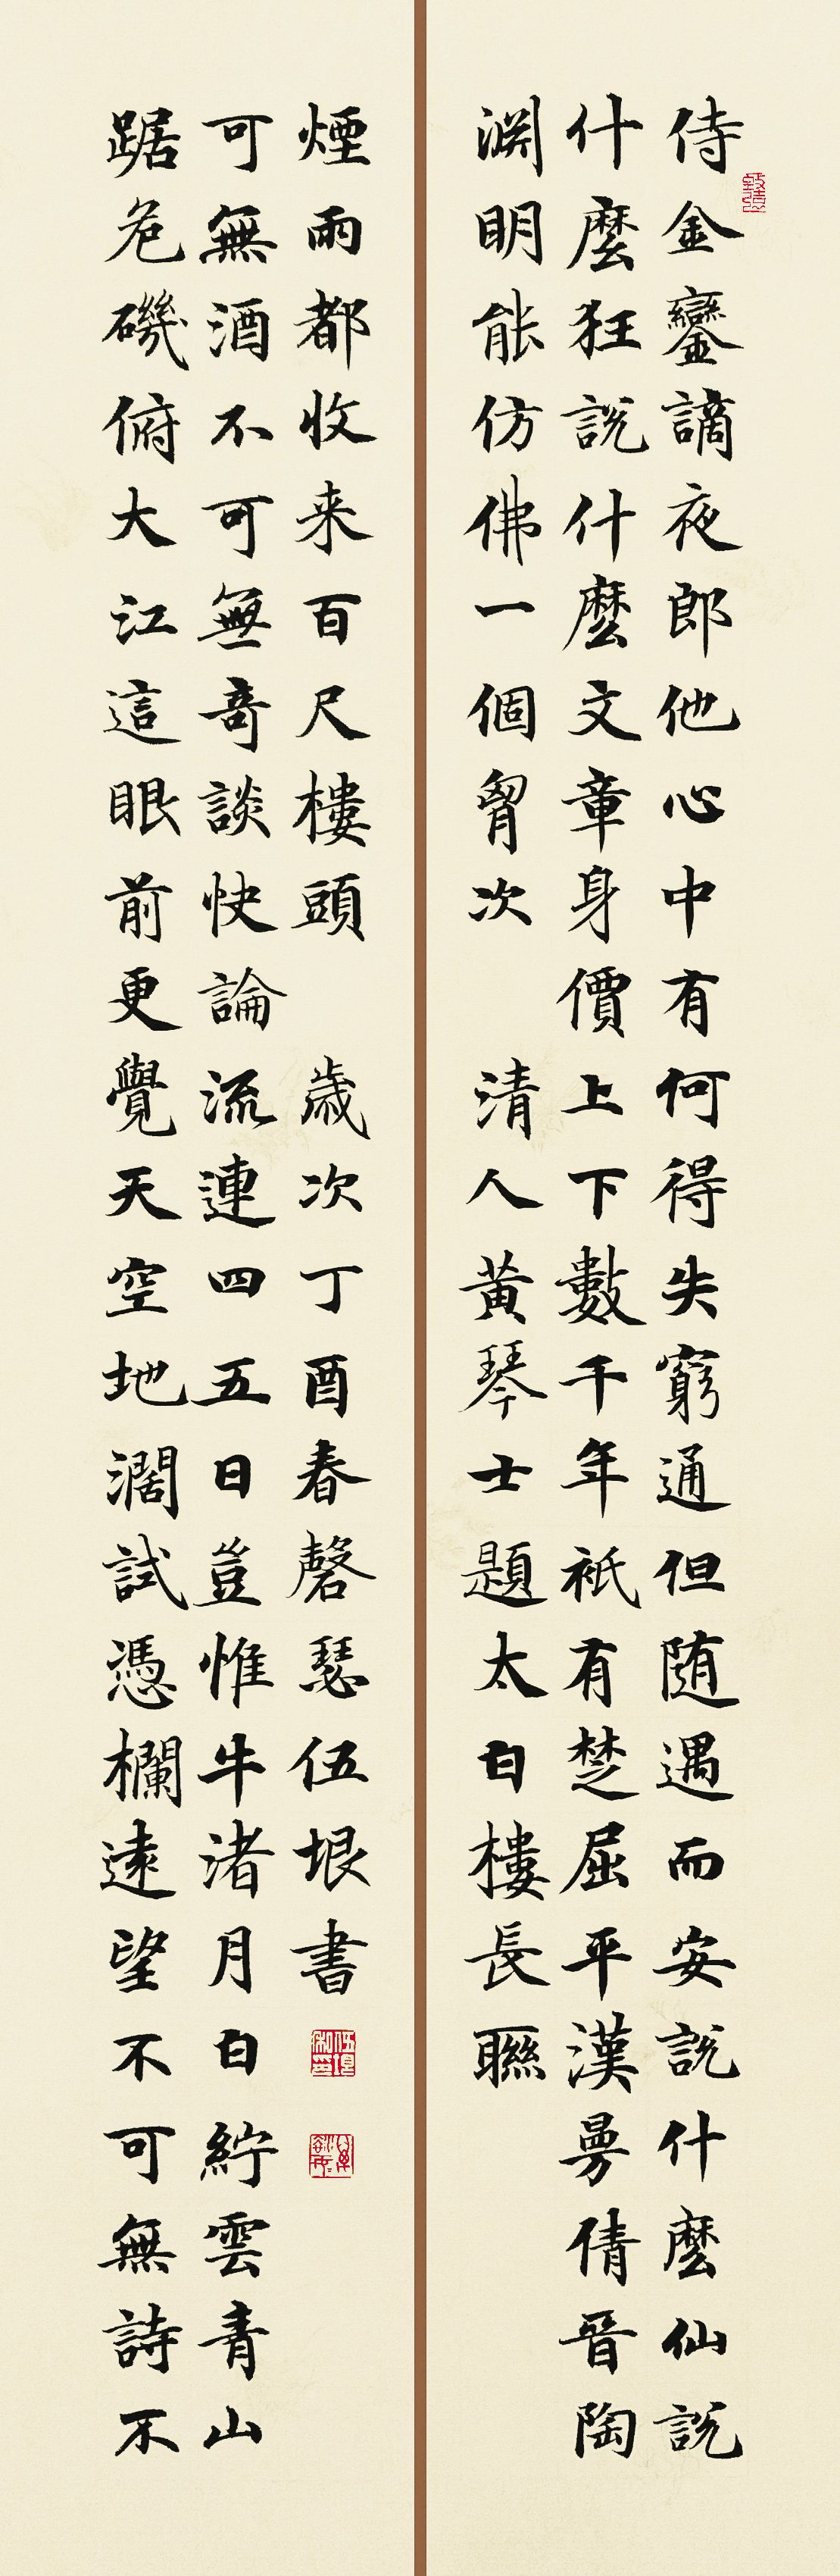 侍金鑾謫夜郎他心中有何得失窮通但随遇而安說什麼仙說
什麼狂說什麼文章身價上下數千年祇有楚屈平漢曼倩晉陶
渊明能仿佛一個胷次 清人黃琴士題太白樓長聯
踞危磯俯大江這眼前更覺天空地濶試憑欄遠望不可無詩不
可無酒不可無奇談快論流連四五日豈惟牛渚月白紵雲青山
煙雨都收来百尺樓頭 歲次丁酉春磬瑟伍垠書